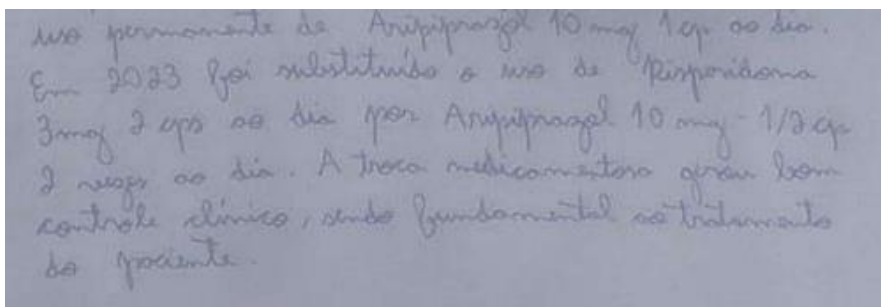 uso permanente de Aripiprazol 10 mg 1 cp ao dia.
Em 2023 foi substituído o uso de Risperidona
3mg 2 cps ao dia por Aripiprazol 10 mg - 1/2 cp
2 vezes ao dia. A troca medicamentosa gerou bom
controle clínico, sendo fundamental ao tratamento
do paciente.